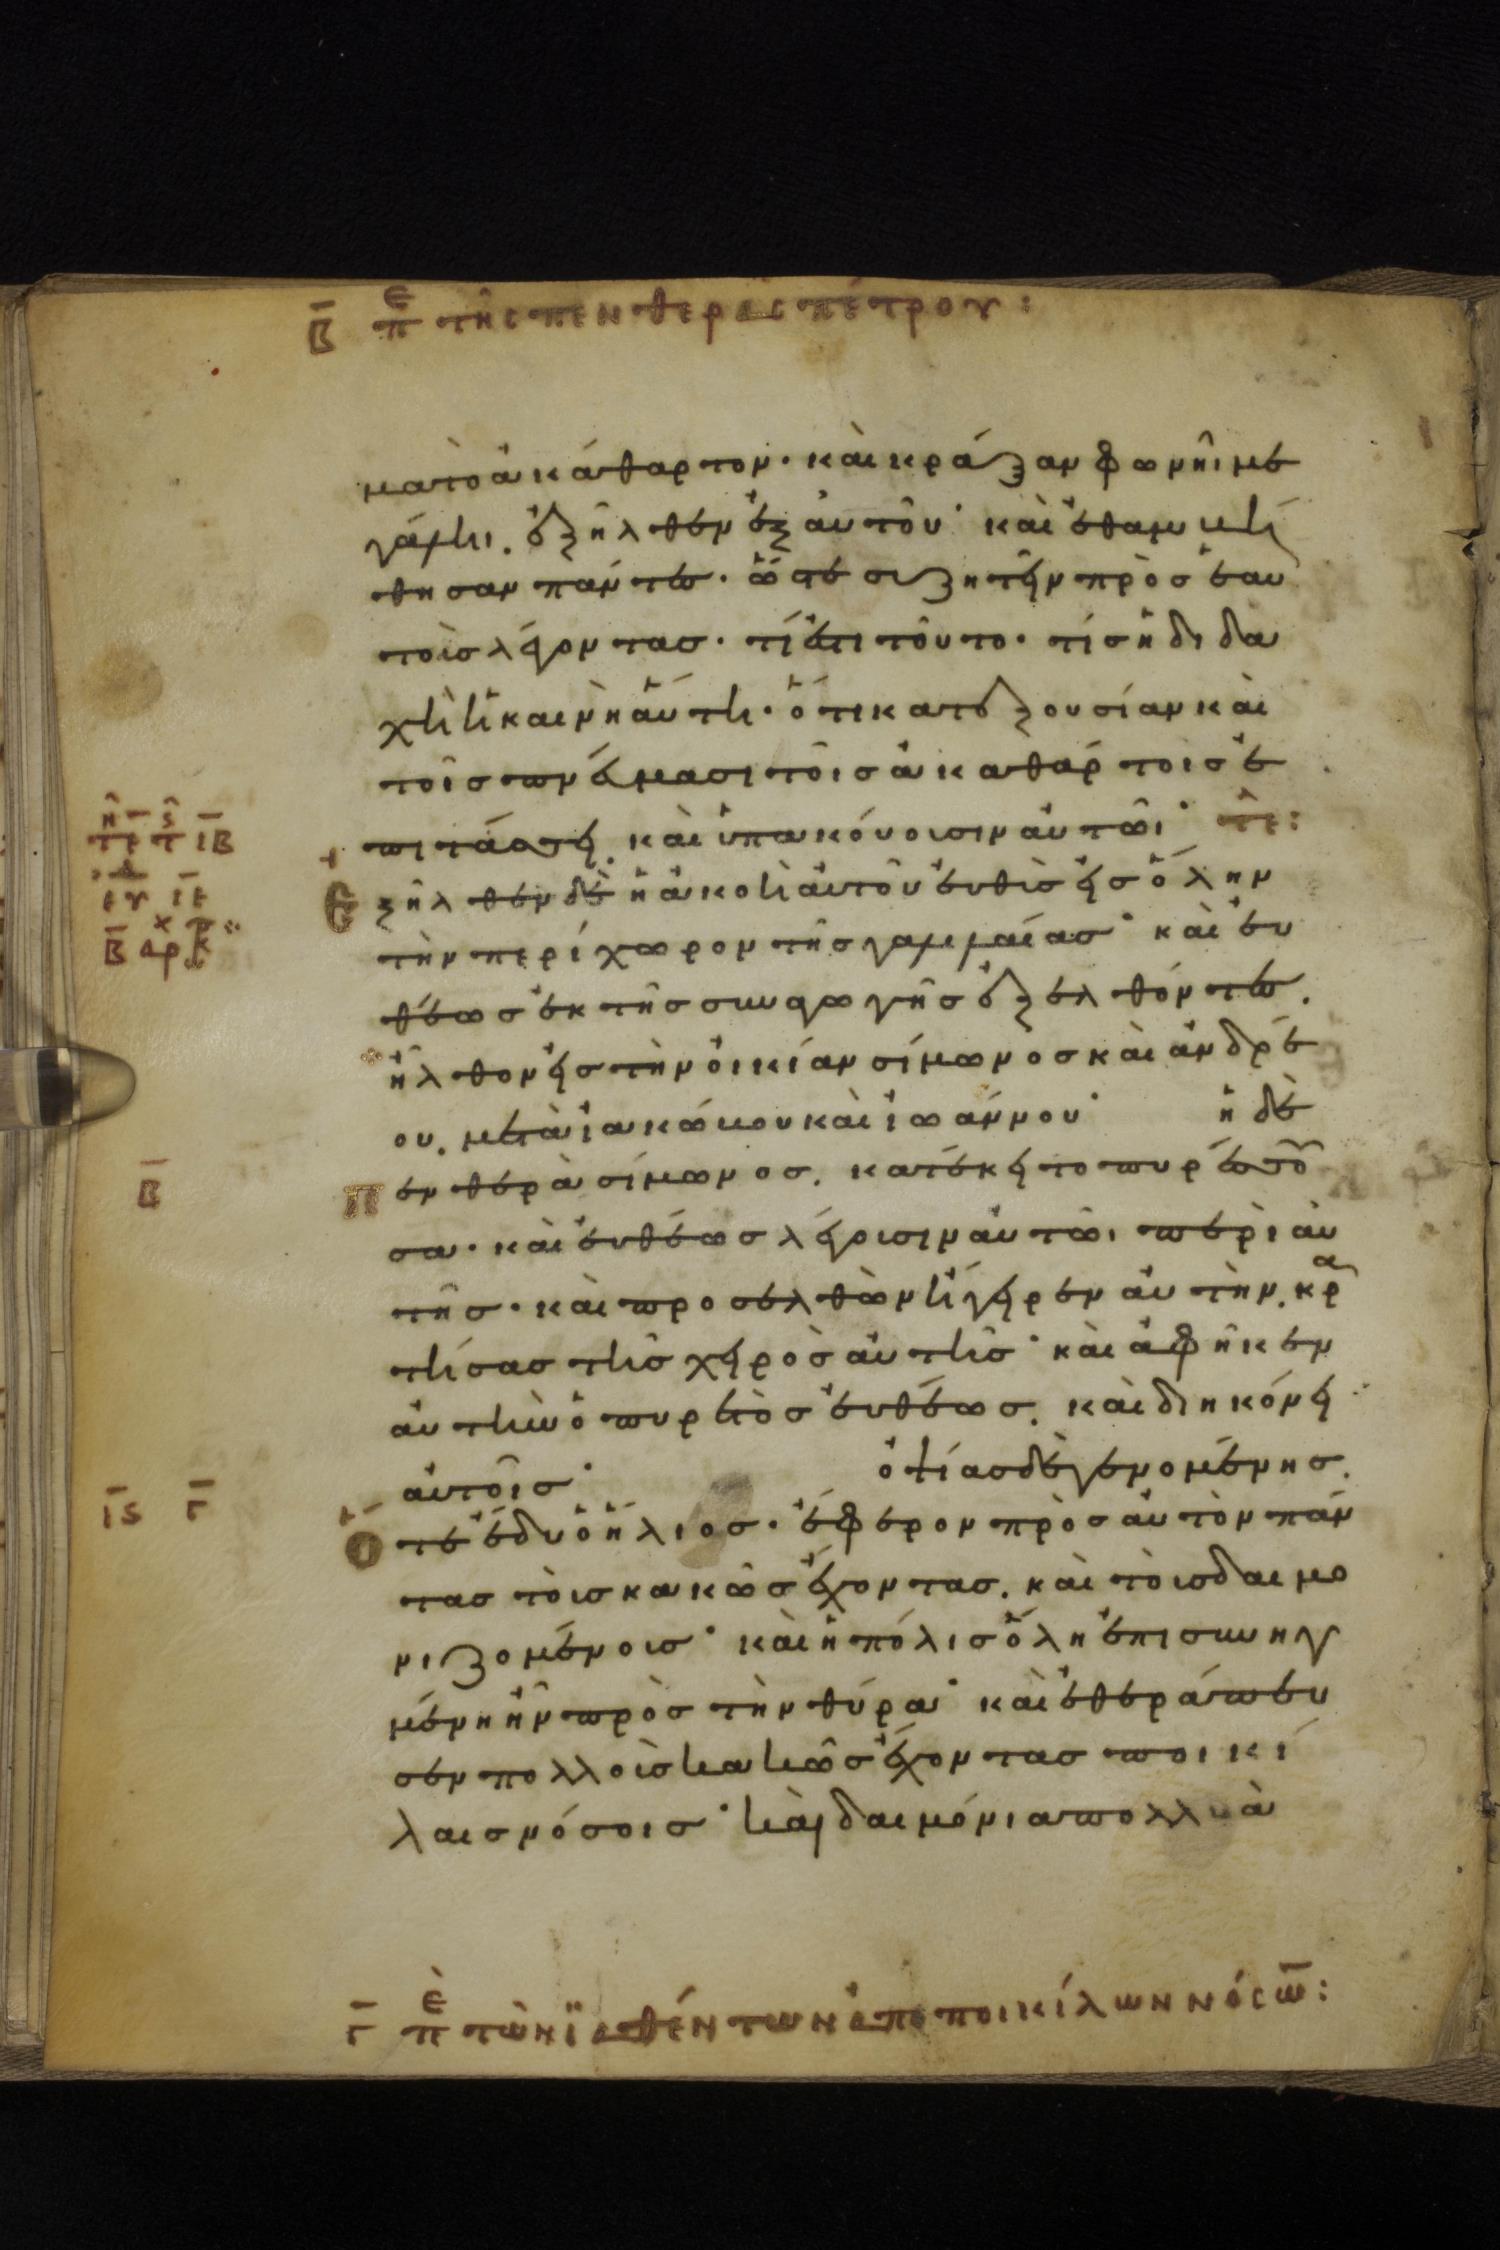 β̄ πε τῆς πενθερᾶς πέτρου:
μα τὸ ἀκάθαρτον· καὶ κράξαν φωνῆι με
γάλη. ἐξῆλθεν ἐξ αὐτοῦ· καὶ ἐθαμβή
θησαν πάντες. ὥστε συζητεῖν πρὸς ἑαυ
τοὺς λέγοντας· τί ἐστι τοῦτο· τίς ἡ διδα
χὴ ἡ καινὴ αὕτη· ὅτι κατ' ἐξουσίαν καὶ
τοῖς πνεύμασι τοῖς ἀκαθάρτοις ἐ
πιτάσσει. καὶ ὑπακούουσιν αὐτῶι· τε:
ξῆλθεν δὲ ἡ ἀκοὴ αὐτοῦ εὐθὺς εἰς ὅλην
Ε
τὴν περίχωρον τῆς γαλιλαίας· καὶ εὐ
θέως ἐκ τῆς συναγωγῆς ἐξελθόντες.
ἦλθον εἰς τὴν οἰκίαν σίμωνος καὶ ἀνδρέ
ου. μετὰ ἰακώβου καὶ ἰωάννου· ἡ δὲ
Πενθερὰ σίμωνος. κατέκειτο πυρέσσου
σα· καὶ εὐθέως λέγουσιν αὐτῶι περὶ αὐ
τῆς· καὶ προσελθὼν ἤγειρεν αὐτὴν. κρα
τήσας τῆς χειρὸς αὐτῆς· καὶ ἀφῆκεν
αὐτὴν ὁ πυρετὸς εὐθέως. καὶ διηκόνει
αὐτοῖς· ὀψίας δὲ γενομένης.
Ὅτε ἔδυ ὁ ἥλιος· ἔφερον πρὸς αὐτὸν πάν
τας τοὺς κακῶς ἔχοντας. καὶ τοὺς δαιμο
νιζομένους· καὶ ἡ πόλις ὅλη ἐπισυνηγ
μένη ἦν πρὸς τὴν θύραν· καὶ ἐθεράπευ
σεν πολλοὺς κακῶς ἔχοντας ποικί
λαις νόσοις· καὶ δαιμόνια πολλὰ
β̄
ις̄ γ̄
γ̄ πε τῶν ἰαθέντων ἀπὸ ποικίλων νόσω̄: